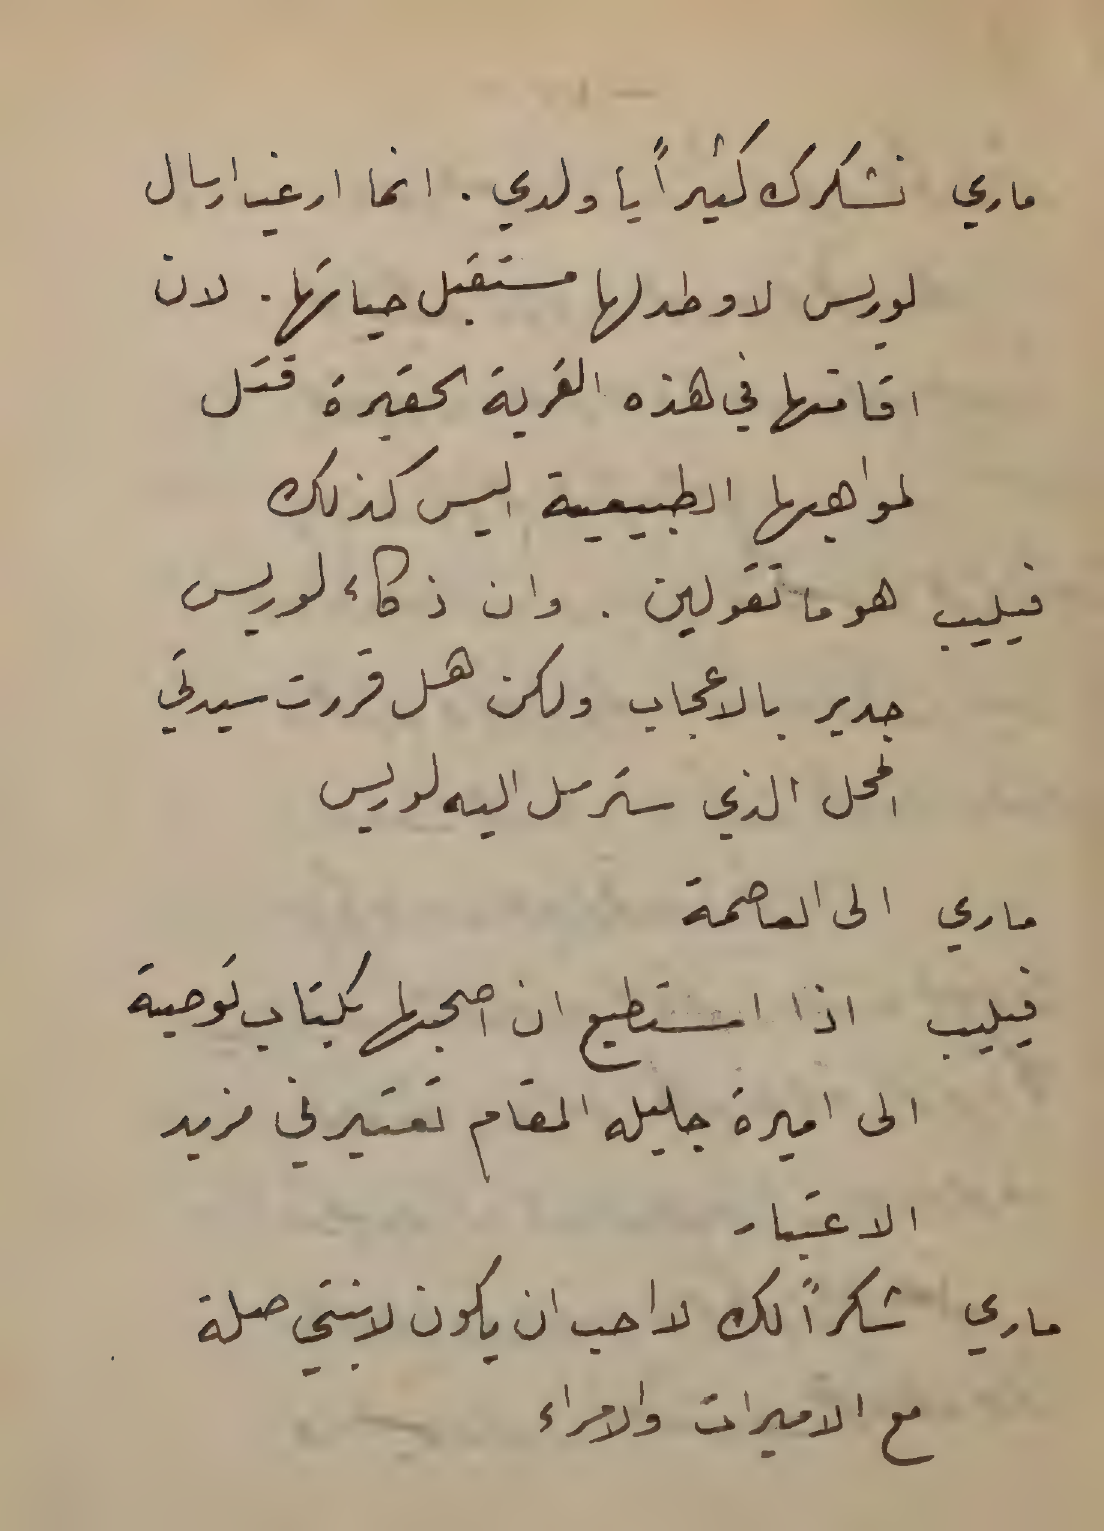 ماري نشكرك كثيراً يا ولدي . انما ارغب ارسال
لوريس لاوطد لها مستقبل حياتها . لان
اقامتها في هذه القرية الحقيرة قتل
لمواهبها الطبيعية اليس كذلك
فيليب هو ما تقولين . وان ذكاء لوريس
جدير بالاعجاب ولكن هل قررت سيدتي
المحل الذي سترسل اليه لوريس
ماري الى العاصمة
فيليب اذا استطيع ان اصحبها بكتاب توصية
الى اميرة جليله المقام تعتبرني مزيد
الاعتبار
ماري شكراً لك لا احب ان يكون لابنتي صلة
مع الاميرات والامراء